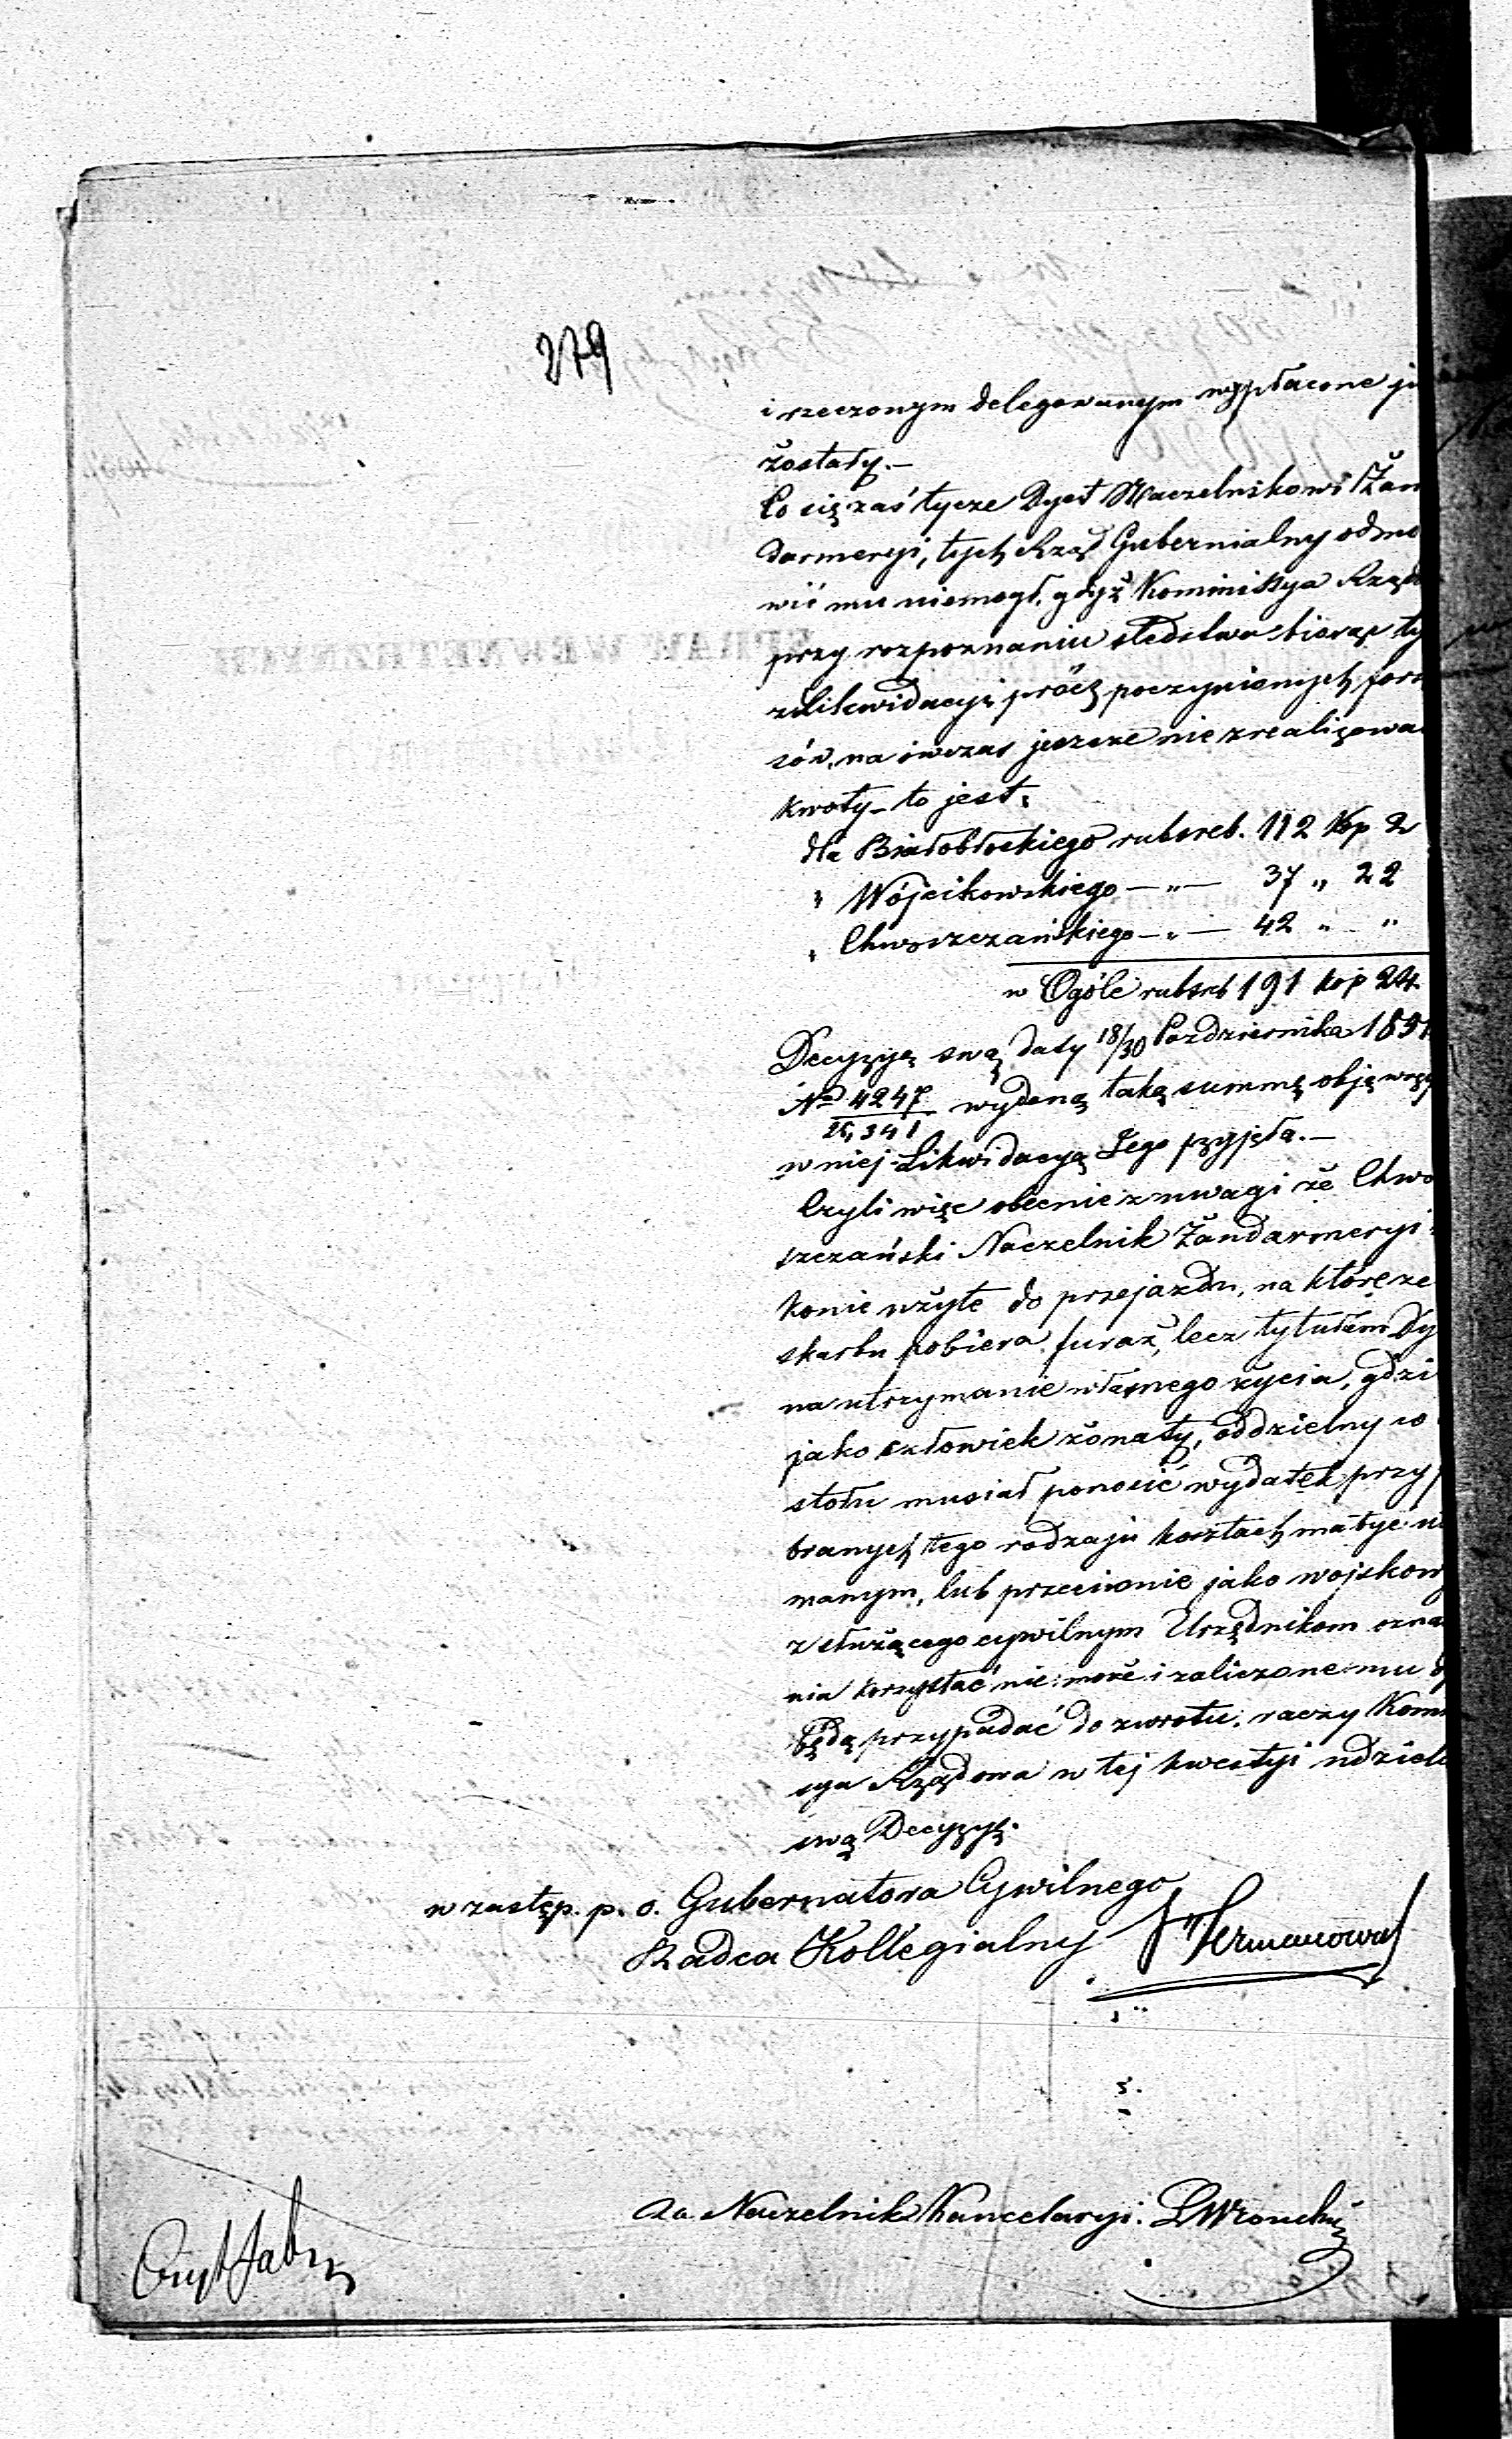 279
i rzeczonym delegowanym wypłacone ju
zostały.—
Co się zaś tycze Dyet Naczelnikowi Żan
darmeryi, tych Rząd Gubernialny odmo
wić mu niemogł, gdyż Kommissya Rządo
przy rozpoznaniu śledztwa biorąc ty
z Likwidacyi prócz poczynionych
sów, na ówczas jeszcze nie zrealizowa
kwoty to jest:
dla Białobłockiego rubsreb. 112 Kop 2
„ Wójcikowskiego — „ — 37 „ 22
„ Chwoszczańskiego — „ — 42 „ „
w Ogóle rubsrb 191 kop 24.
Decyzyą swą daty 18/30 Października 185
No 4247 wydaną taką summę objąwszy
25,341
w niej Likwidacyą Jego przyjęła.—
Czyli więc obecnie z uwagi że Chwo
szczański Naczelnik Żandarmeryi
konie użyte do przejazdu, na które ze
skarbu pobiera furaż, lecz tytułem Dy
na utrzymanie własnego życia, gdzi
jako człowiek żonaty, oddzielny co
stołu musiał ponosić wydatek przy p
branych tego rodzaju kosztach ma być u
manym, lub przeciwnie jako wojskowy
z służącego cywilnym Urzędnikom ozna
nia korzystać nie może i zaliczone mu d
będą przypadać do zwrotu, raczy Komi
sya Rządowa w tej kwestyi udziel
swą Decyzyę.
w zastęp. p. o. Gubernatora Cywilnego
Radca Kollegialny Hermanowa
za Naczelnik Kancelaryi.